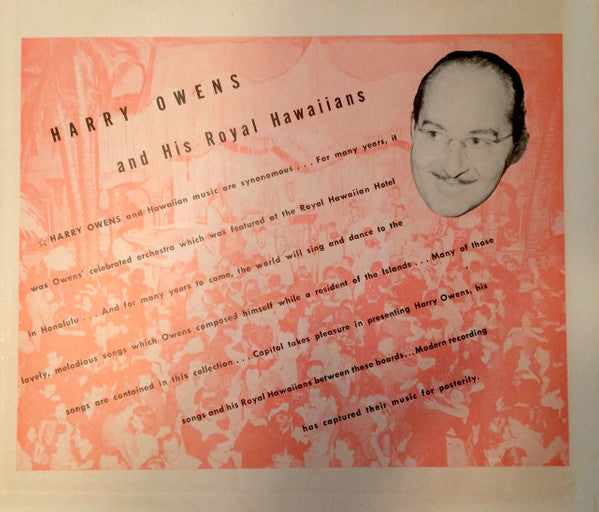 HARRY OWENS
and His Royal Hawaiians
☆HARRY OWENS and Hawaiian music are synonomous . . . For many years, it
was Owens' celebrated orchestra which was featured at the Royal Hawaiian Hotel
in Honolulu . . . And for many years to come, the world will sing and dance to the
lovely, melodious songs which Owens composed himself while a resident of the Islands . . . Many of those
songs are contained in this collection . . . Capitol takes pleasure in presenting Harry Owens, his
songs and his Royal Hawaiians between these boards...Modern recording
has captured their music for posterity.